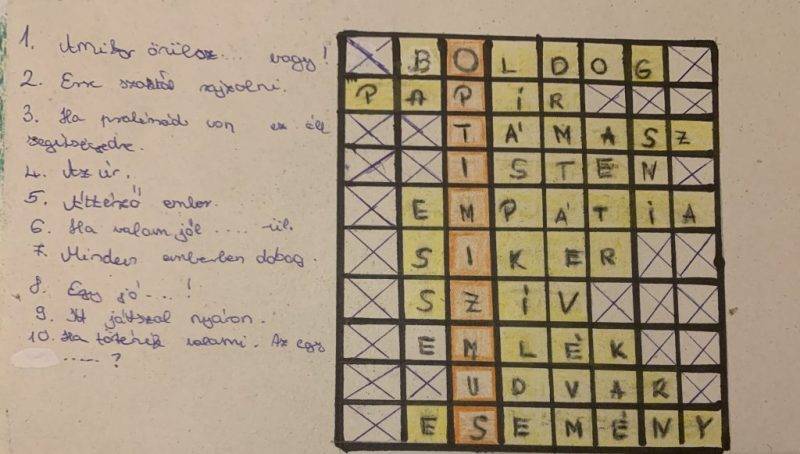 1. Amikor örülsz... vagy!
2. Erre szoktál rajzolni.
3. Ha problémád van ez áll
segítségedre.
4. Az úr.
5. Áttérző ember.
6. Ha valami jól .... -ül.
7. Minden emberben dobog.
8. Egy jó ....!
9. Itt játszol nyáron.
10. Ha történik valami. Az egy
.....?
BOLDOG
PAPÍR
TÁMASZ
ISTEN
EMPÁTIA
SIKER
SZÍV
EMLÉK
UDVAR
ESEMÉNY